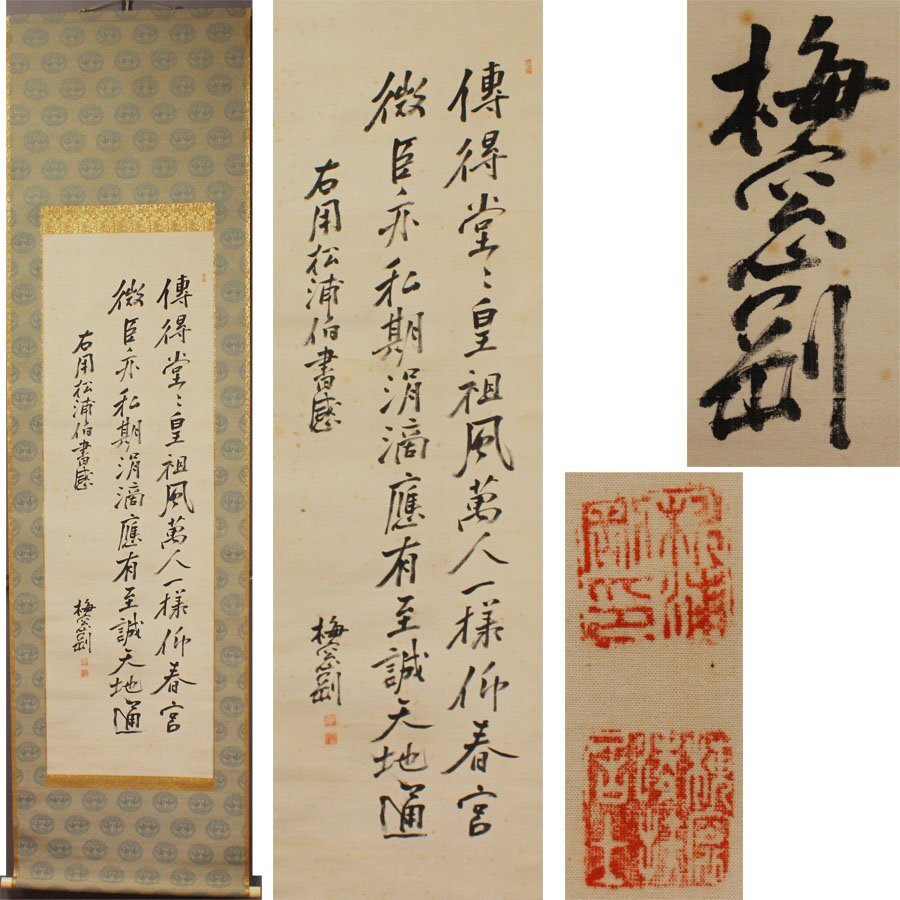 傳得堂〻皇祖風萬人一樣仰春宮
微臣亦私期涓滴應有至誠天地通
右用松浦伯書感
梅窓剛
傳得堂〻皇祖風萬人一樣仰春宮
微臣亦私期涓滴應有至誠天地通
右用松浦伯書感
梅窓剛
梅窓剛
杉浦
剛印